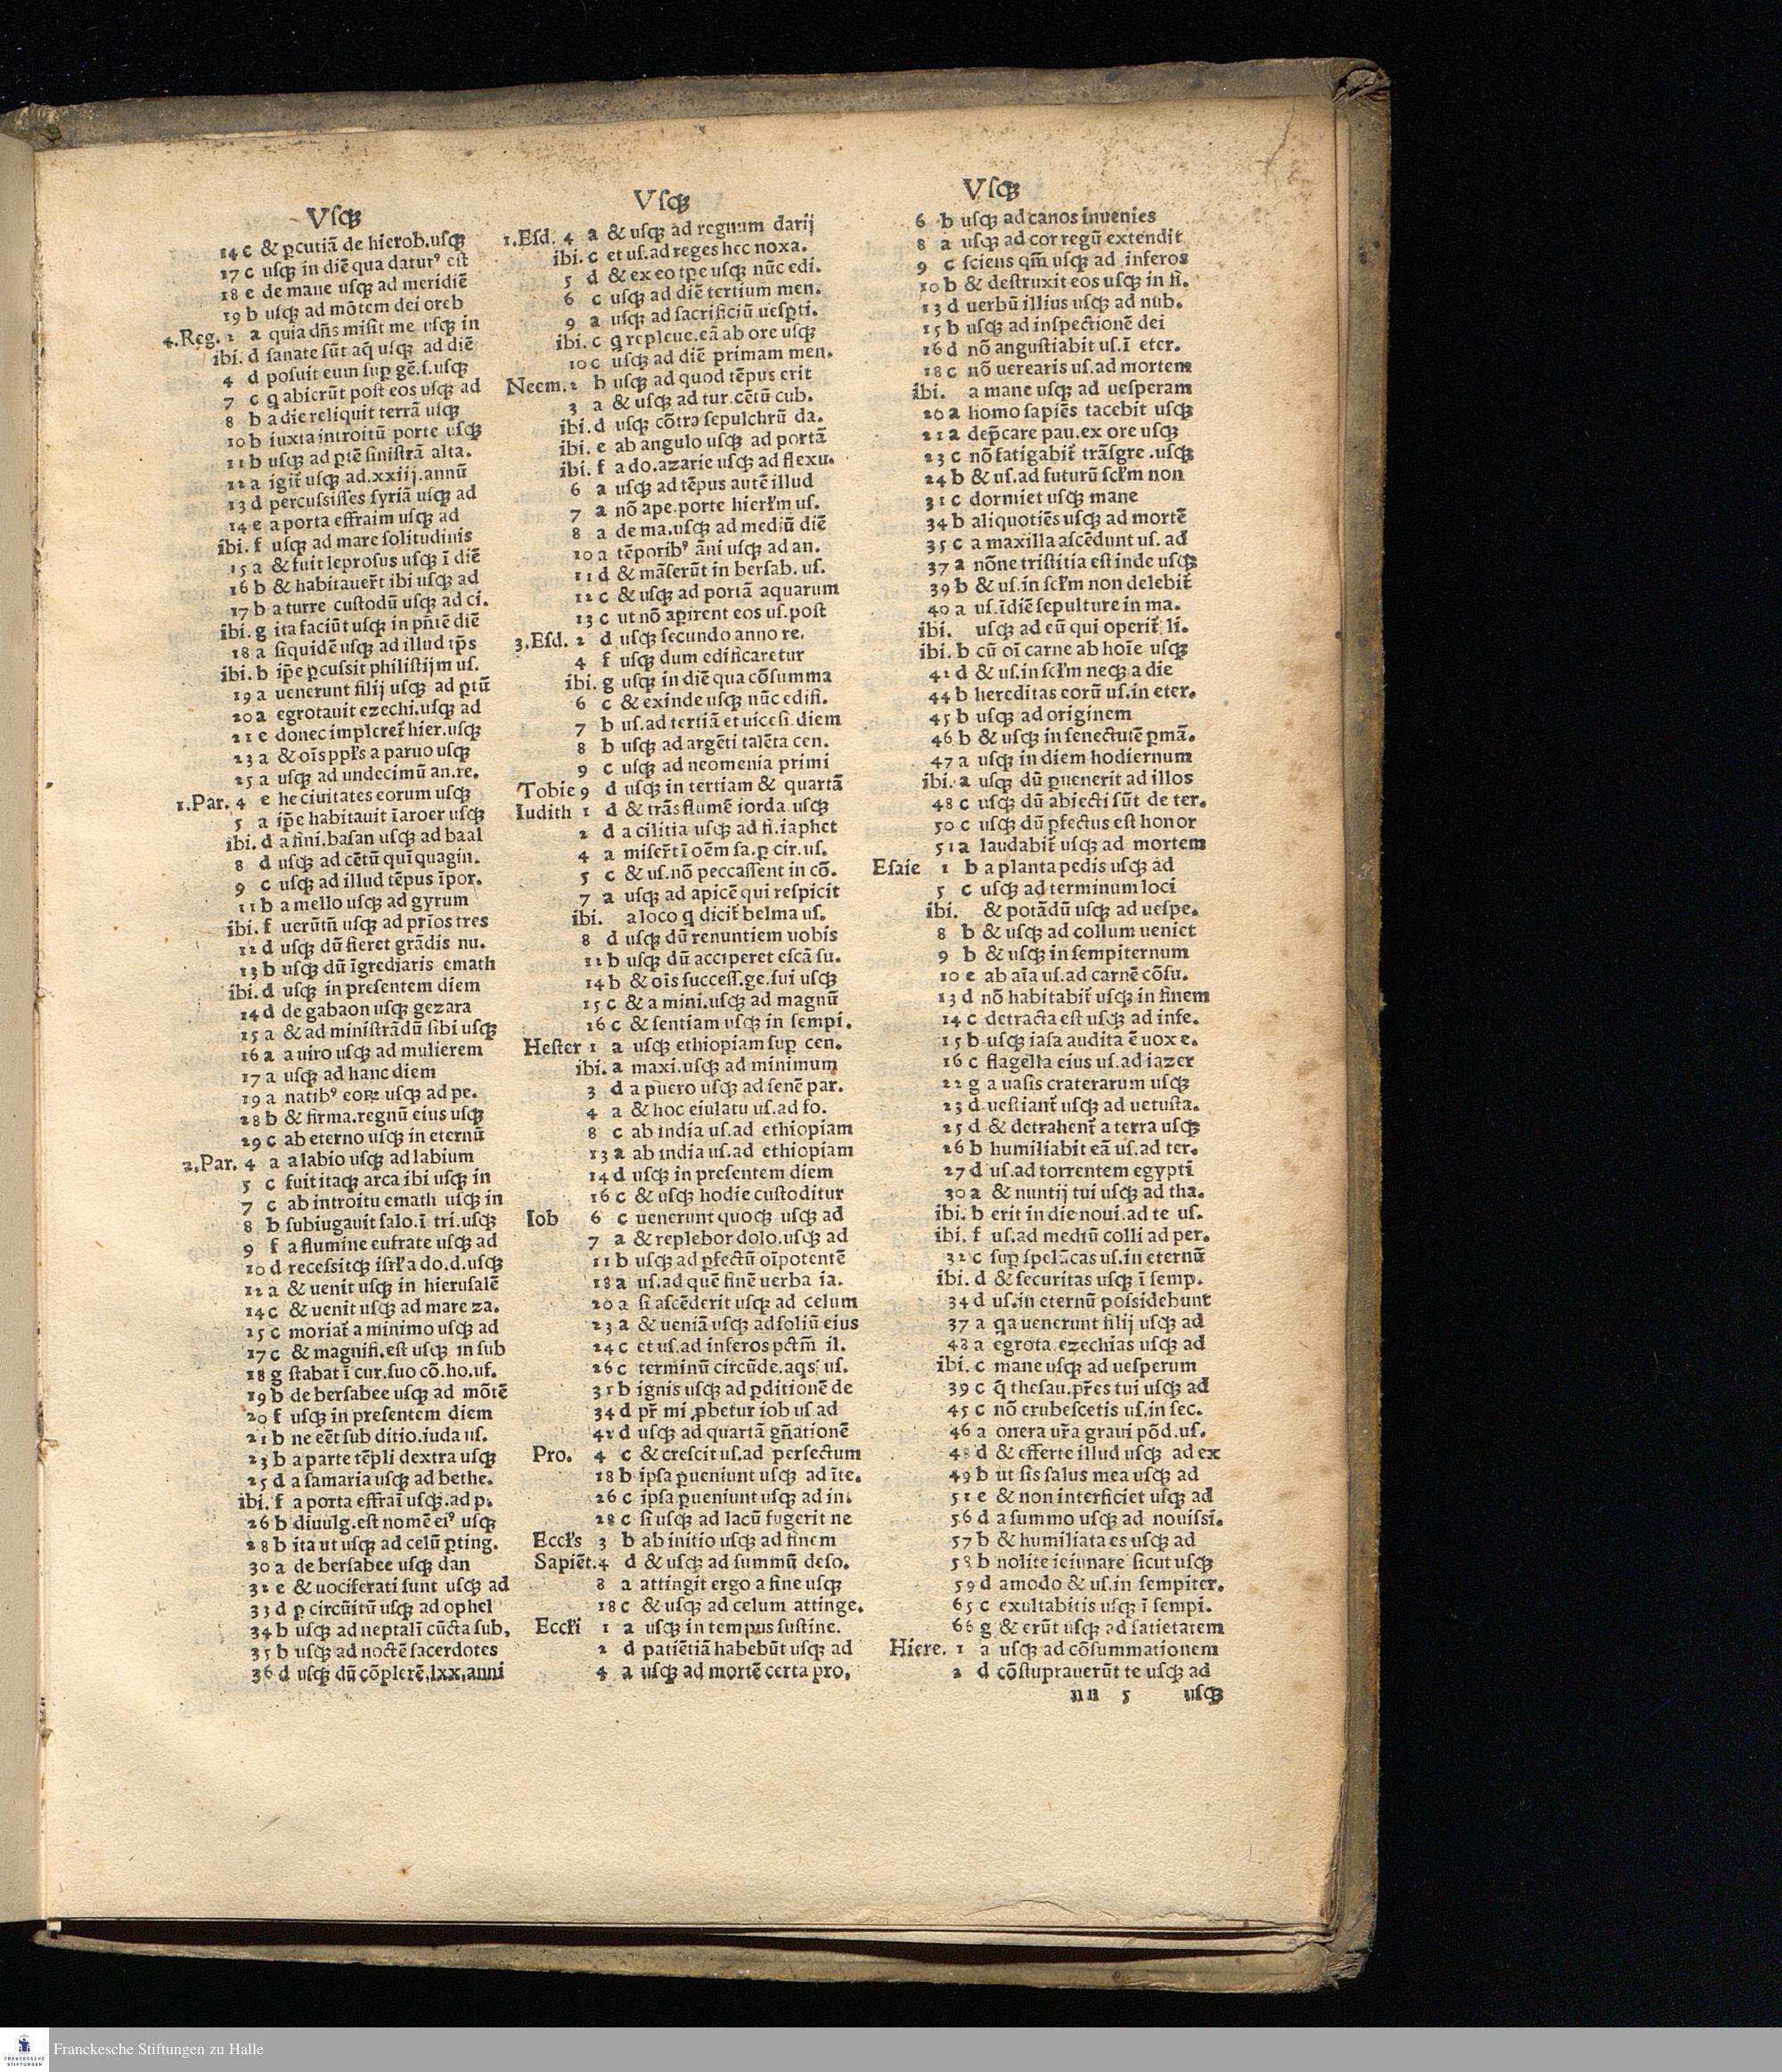 Vſꝙ
14 c & ꝑcutiā de hierob.uſꝙ
17 c uſꝙ in diē qua daturꝰ eſt
18 e de mane uſꝙ ad meridiē
19 b uſꝙ ad mōtem dei oreb
4.Reg. 2 a quia dn̄s miſit me uſꝙ in
ibi. d ſanate ſūt aq̄ uſꝙ ad diē
4 d poſuit eum ſuꝑ gē.ſ.uſꝙ
7 c q abierūt poſt eos uſꝙ ad
8 b a die reliquit terrā uſꝙ
10 b iuxta introitū porte uſꝙ
11 b uſꝙ ad ꝑtē ſiniſtrā alta.
12 a igit̄ uſꝙ ad.xxiij.annū
13 d percuſsiſſes ſyriā uſꝙ ad
14 e a porta effraim uſꝙ ad
ibi. f uſꝙ ad mare ſolitudinis
15 a & fuit leproſus uſꝙ ī diē
16 b & habitauer̄t ibi uſꝙ ad
17 b a turre cuſtodū uſꝙ ad ci.
ibi. g ita faciūt uſꝙ in pn̄tē diē
18 a ſiquidē uſꝙ ad illud tp̄s
ibi. b ip̄e ꝑcuſsit philiſtijm uſ.
19 a uenerunt filij uſꝙ ad ꝑtū
20 a egrotauit ezechi.uſꝙ ad
21 e donec impleret̄ hier.uſꝙ
23 a & oīs ppƚs a paruo uſꝙ
25 a uſꝙ ad undecimū an.re.
1.Par. 4 e he ciuitates eorum uſꝙ
5 a ip̄e habitauit īaroer uſꝙ
ibi. d a fini.baſan uſꝙ ad baal
8 d uſꝙ ad cētū quīquagin.
9 c uſꝙ ad illud tēpus īpor.
11 b a mello uſꝙ ad gyrum
ibi. f uerūtn̄ uſꝙ ad prīos tres
12 d uſꝙ dū fieret grādis nu.
13 b uſꝙ dū īgrediaris emath
ibi. d uſꝙ in preſentem diem
14 d de gabaon uſꝙ gezara
15 a & ad miniſtrādū ſibi uſꝙ
16 a a uiro uſꝙ ad mulierem
17 a uſꝙ ad hanc diem
19 a natibꝰ eoꝝ uſꝙ ad pe.
28 b & firma.regnū eius uſꝙ
29 c ab eterno uſꝙ in eternū
2.Par. 4 a a labio uſꝙ ad labium
5 c fuit itaꝙ arca ibi uſꝙ in
7 c ab introitu emath uſꝙ in
8 b ſubiugauit ſalo.ī tri.uſꝙ
9 f a flumine eufrate uſꝙ ad
10 d receſsitꝙ iſrƚ a do.d.uſꝙ
12 a & uenit uſꝙ in hieruſalē
14 c & uenit uſꝙ ad mare za.
15 c moriat̄ a minimo uſꝙ ad
17 c & magnifi.eſt uſꝙ in ſub
18 g ſtabat ī cur.ſuo cō.ho.uſ.
19 b de berſabee uſꝙ ad mōtē
20 f uſꝙ in preſentem diem
21 b ne eēt ſub ditio.iuda uſ.
23 b a parte tēpli dextra uſꝙ
25 d a ſamaria uſꝙ ad bethe.
ibi. f a porta effraī uſꝙ.ad p.
26 b diuulg.eſt nomē eiꝰ uſꝙ
28 b ita ut uſꝙ ad celū ꝑting.
30 a de berſabee uſꝙ dan
32 e & uociferati ſunt uſꝙ ad
33 d ꝑ circūitū uſꝙ ad ophel
34 b uſꝙ ad neptalī cūcta ſub.
35 b uſꝙ ad noctē ſacerdotes
36 d uſꝙ dū cōplerē.lxx.anni
Vſꝙ
1.Eſd. 4 a & uſꝙ ad regnum darij
ibi. c et uſ.ad reges hec noxa.
5 d & ex eo tp̄e uſꝙ nūc edi.
6 c uſꝙ ad diē tertium men.
9 a uſꝙ ad ſacrificiū ueſꝑti.
ibi. c q repleue.eā ab ore uſꝙ
10 c uſꝙ ad diē primam men.
Neem. 2 b uſꝙ ad quod tēpus erit
3 a & uſꝙ ad tur.cētū cub.
ibi. d uſꝙ cōtra ſepulchrū da.
ibi. e ab angulo uſꝙ ad portā
ibi. f a do.azarie uſꝙ ad flexu.
6 a uſꝙ ad tēpus autē illud
7 a nō ape.porte hierƚm uſ.
8 a de ma.uſꝙ ad mediū diē
10 a tēporibꝰ āni uſꝙ ad an.
11 d & māſerūt in berſab. uſ.
12 c & uſꝙ ad portā aquarum
13 c ut nō aꝑirent eos uſ.poſt
3.Eſd. 2 d uſꝙ ſecundo anno re.
4 f uſꝙ dum edificaretur
ibi. g uſꝙ in diē qua cōſumma
6 c & exinde uſꝙ nūc edifi.
7 b uſ.ad tertiā et uiceſi.diem
8 b uſꝙ ad argēti talēta cen.
9 c uſꝙ ad neomenia primi
Tobie 9 d uſꝙ in tertiam & quartā
Iudith 1 d & trāſflumē iorda uſꝙ
2 d a cilitia uſꝙ ad fi.iaphet
4 a miſer̄t ī oēm ſa.ꝑ cir.uſ.
5 c & uſ.nō peccaſſent in cō.
7 a uſꝙ ad apicē qui reſpicit
ibi. a loco q dicit̄ belma uſ.
8 d uſꝙ dū renuntiem uobis
12 b uſꝙ dū acciperet eſcā ſu.
14 b & oīs ſucceſſ.ge.ſui uſꝙ
15 c & a mini.uſꝙ ad magnū
16 c & ſentiam uſꝙ in ſempi.
Heſter 1 a uſꝙ ethiopiam ſuꝑ cen.
ibi. a maxi.uſꝙ ad minimum
3 d a puero uſꝙ ad ſenē par.
4 a & hoc eiulatu uſ.ad fo.
8 c ab india uſ.ad ethiopiam
13 a ab india uſ.ad ethiopiam
14 d uſꝙ in preſentem diem
16 c & uſꝙ hodie cuſtoditur
Iob 6 c uenerunt quoꝙ uſꝙ ad
7 a & replebor dolo.uſꝙ ad
11 b uſꝙ ad ꝑfectū oīpotentē
18 a uſ.ad quē finē uerba ia.
20 a ſi aſcēderit uſꝙ ad celum
23 a & ueniā uſꝙ ad ſoliū eius
24 c et uſ.ad inferos pctm̄ il.
26 c terminū circūde.aqs uſ.
31 b ignis uſꝙ ad ꝑditionē de
34 d pr̄ mi ꝓbetur iob uſ ad
42 d uſꝙ ad quartā gn̄ationē
Pro. 4 c & creſcit uſ.ad perfectum
18 b ipſa ꝑueniunt uſꝙ ad īte.
26 c ipſa ꝑueniunt uſꝙ ad in.
28 c ſi uſꝙ ad lacū fugerit ne
Eccƚs 3 b ab initio uſꝙ ad finem
Sapiēt. 4 d & uſꝙ ad ſummū deſo.
8 a attingit ergo a fine uſꝙ
18 c & uſꝙ ad celum attinge.
Eccƚi 1 a uſꝙ in tempus ſuſtine.
2 d patiētiā habebūt uſꝙ ad
4 a uſꝙ ad mortē certa pro.
Vſꝙ
6 b uſꝙ ad canos inuenies
8 a uſꝙ ad cor regū extendit
9 c ſciens qm̄ uſꝙ ad inferos
10 b & deſtruxit eos uſꝙ in fi.
13 d uerbū illius uſꝙ ad nub.
15 b uſꝙ ad inſpectionē dei
16 d nō anguſtiabit uſ.ī eter.
18 c nō uerearis uſ.ad mortem
ibi. a mane uſꝙ ad ueſperam
20 a homo ſapiēs tacebit uſꝙ
21 a dep̄care pau.ex ore uſꝙ
23 c nō fatigabit̄ trāſgre.uſꝙ
24 b & uſ.ad futurū ſcƚm non
31 c dormiet uſꝙ mane
34 b aliquotiēs uſꝙ ad mortē
35 c a maxilla aſcēdunt uſ. ad
37 a nōne triſtitia eſt inde uſꝙ
39 b & uſ.in ſcƚm non delebit̄
40 a uſ.īdiē ſepulture in ma.
ibi. uſꝙ ad eū qui operit̄ li.
ibi. b cū oī carne ab hoīe uſꝙ
41 d & uſ.in ſcƚm neꝙ a die
44 b hereditas eorū uſ.in eter.
45 b uſꝙ ad originem
46 b & uſꝙ in ſenectutē ꝑmā.
47 a uſꝙ in diem hodiernum
ibi. a uſꝙ dū ꝑuenerit ad illos
48 c uſꝙ dū abiecti ſūt de ter.
50 c uſꝙ dū ꝑfectus eſt honor
51 a laudabit̄ uſꝙ ad mortem
Eſaie 1 b a planta pedis uſꝙ ad
5 c uſꝙ ad terminum loci
ibi. & potādū uſꝙ ad ueſpe.
8 b & uſꝙ ad collum ueniet
9 b & uſꝙ in ſempiternum
10 e ab aīa uſ.ad carnē cōſu.
13 d nō habitabit̄ uſꝙ in finem
14 c detracta eſt uſꝙ ad infe.
15 b uſꝙ iaſa audita ē uox e.
16 c flagella eius uſ.ad iazer
22 g a uaſis craterarum uſꝙ
23 d ueſtiant̄ uſꝙ ad uetuſta.
25 d & detrahent̄ a terra uſꝙ
26 b humiliabit eā uſ.ad ter.
27 d uſ.ad torrentem egypti
30 a & nuntij tui uſꝙ ad tha.
ibi. b erit in die noui.ad te uſ.
ibi. f uſ.ad mediū colli ad per.
32 c ſuꝑ ſpelūcas uſ.in eternū
ibi. d & ſecuritas uſꝙ ī ſemp.
34 d uſ.in eternū poſsidebunt
37 a qa uenerunt filij uſꝙ ad
48 a egrota.ezechias uſꝙ ad
ibi. c mane uſꝙ ad ueſperum
39 c q̄ theſau.pr̄es tui uſꝙ ad
45 c nō erubeſcetis uſ.in ſec.
46 a onera ur̄a graui pōd.uſ.
48 d & efferte illud uſꝙ ad ex
49 b ut ſis ſalus mea uſꝙ ad
51 e & non interficiet uſꝙ ad
56 d a ſummo uſꝙ ad nouiſsi.
57 b & humiliata es uſꝙ ad
58 b nolite ieiunare ſicut uſꝙ
59 d amodo & uſ.in ſempiter.
65 c exultabitis uſꝙ ī ſempi.
66 g & erūt uſꝙ ad ſatietatem
Hiere. 1 a uſꝙ ad cōſummationem
2 d cōſtuprauerūt te uſꝙ ad
nn 5 uſꝙ
FRANCKESCHE STIFTUNGEN
Franckesche Stiftungen zu Halle